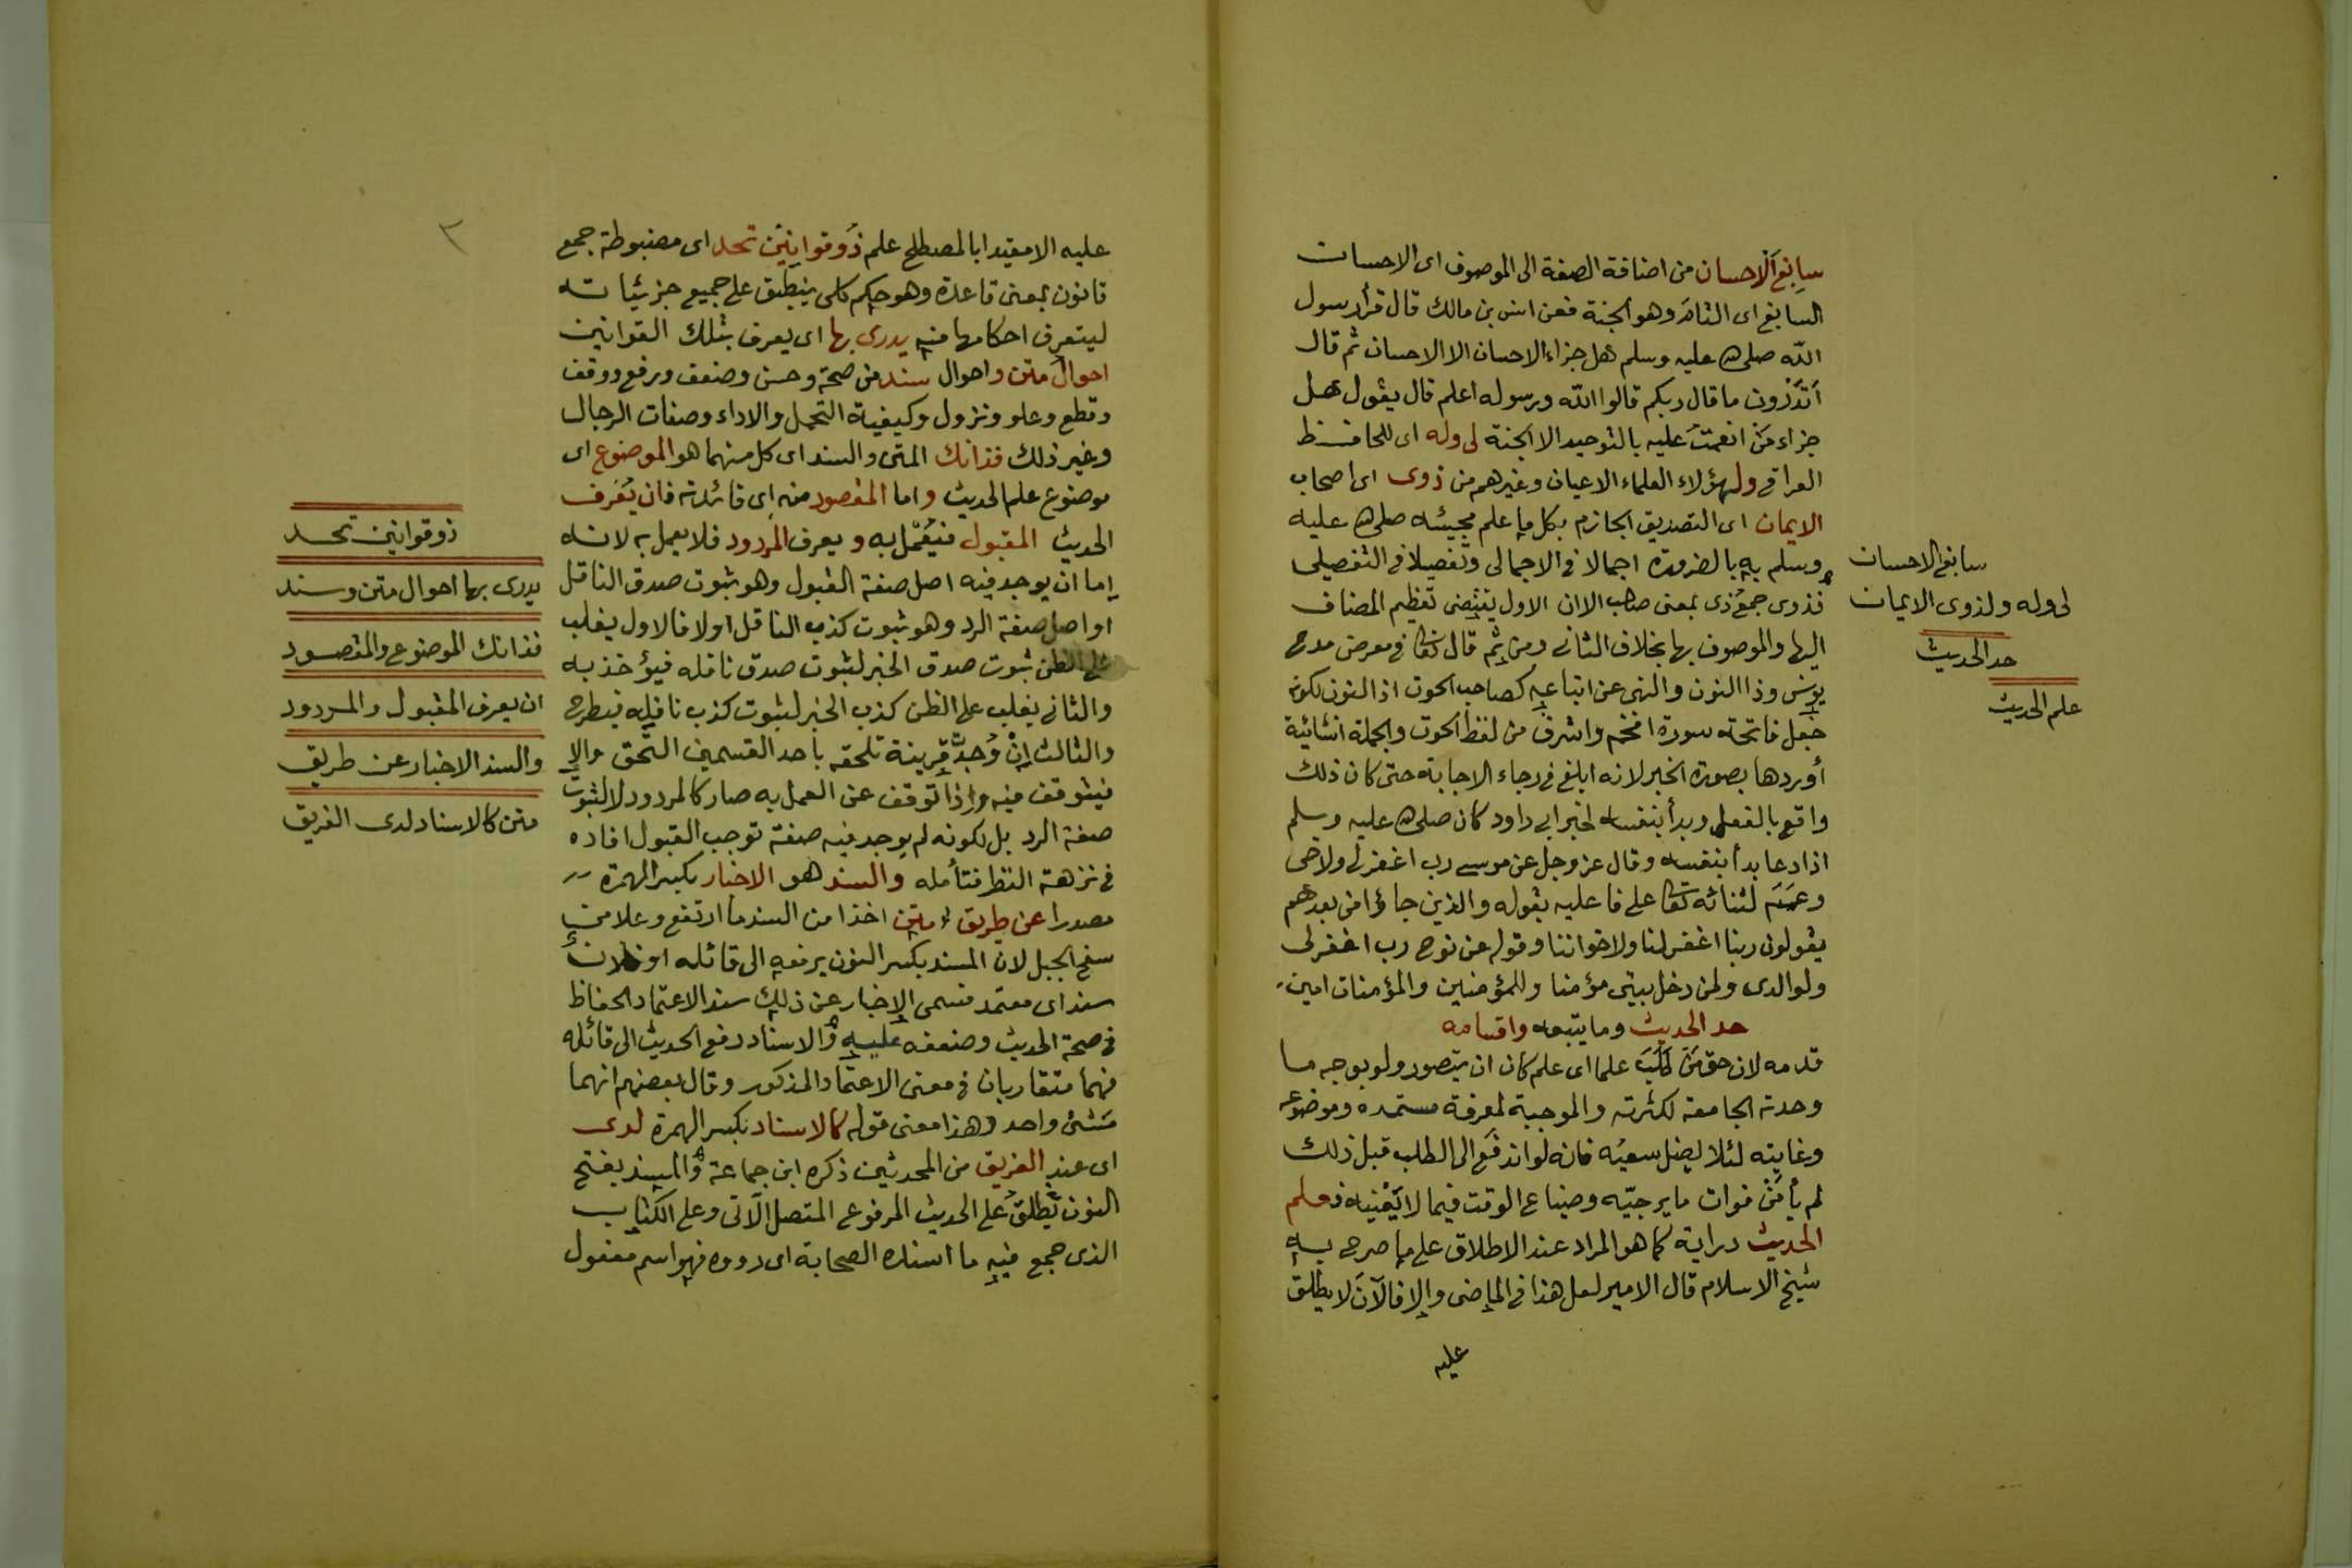 سابغ الاحسان من اضافة الصفة الى الموصوف اى الاحسان
السابغ اى التام وهو الجنة فعن انس بن مالك قال قرأ رسول
الله صلى الله عليه وسلم هل جزاء الاحسان الا الاحسان ثم قال
أتدرون ما قال ربكم قالوا الله ورسوله اعلم قال يقول هل
جزاء من انعمت عليه بالتوحيد الا الجنة لى وله اى للحافظ
العراقى ولهؤلاء العلماء الاعيان وغيرهم من ذوى اى اصحاب
الايمان اى التصديق الجازم بكل ما علم مجيئه صلى الله عليه
وسلم به بالضرورة اجمالا فى الاجمالى وتفصيلا فى التفصيلى
فذوى جمع ذى بمعنى صاحب الا ان الاول يقتضى تعظيم المضاف
اليها والموصوف بها بخلاف الثانى ومن ثم قال تعالى فى معرض مدح
يونس وذا النون والنهى عن اتباعه كصاحب الحوت اذ النون لكونه
جعل فاتحته سورة افخم واشرف من لفظ الحوت والجملة انشائية
أوردها بصورة الخبر لانه ابلغ فى رجاء الاجابة حتى كان ذلك
واقع بالفعل وبدأ بنفسه لخبر ابى داود كان صلى الله عليه وسلم
اذا دعا بدأ بنفسه وقال عز وجل عن موسى رب اغفر لى ولاخى
وعمم لثنائه تعالى على فاعليه بقوله والذين جاؤا من بعدهم
يقولون ربنا اغفر لنا ولاخواننا وقوله عن نوح رب اغفر لى
ولوالدى ولمن دخل بيتى مؤمنا وللمؤمنين والمؤمنات امين
حد الحديث وما يتبعه واقسامه
قدمه لان حق من طلب علما اى علم كان ان يتصور ولو بوجه ما
وحدته الجامعة لكثرته والموجبة لمعرفة مستمده وموضوعه
وغايته لئلا يضل سعيه فانه لو اندفع الى الطلب قبل ذلك
لم يأمن فوات ما يرجيه وضياع الوقت فيما لا يعنيه فعلم
الحديث دراية كما هو المراد عند الاطلاق على ما صرح به
شيخ الاسلام قال الامير لعل هذا فى الماضى والا فالآن لا يطلق
عليه
سابغ الاحسان
لى وله ولذوى الايمان
حد الحديث
علم الحديث
٣
عليه الا مقيدا بالمصطلح علم ذو قوانين تحد اى مضبوطة جمع
قانون بمعنى قاعدة وهو حكم كلى ينطبق على جميع جزئياته
ليتعرف احكامها منه يدرى بها اى يعرف بتلك القوانين
احوال متن واحوال سند من صحة وحسن وضعف ورفع ووقف
وقطع وعلو ونزول وكيفية التحمل والاداء وصفات الرجال
وغير ذلك فذانك المتن والسند اى كل منهما هو الموضوع اى
موضوع علم الحديث واما المقصود منه اى فائدته فان يعرف
الحديث المقبول فيعمل به ويعرف المردود فلا يعمل به لانه
إما ان يوجد فيه اصل صفة القبول وهو ثبوت صدق الناقل
او اصل صفة الرد وهو ثبوت كذب الناقل او لا فالاول يغلب
على الظن ثبوت صدق الخبر لثبوت صدق ناقله فيؤخذ به
والثانى يغلب على الظن كذب الخبر لثبوت كذب ناقله فيطرح
والثالث إن وجد قرينة تلحقه باحد القسمين التحق والا
فيتوقف فيه واذا توقف عن العمل به صار كالمردود لا لثبوت
صفة الرد بل لكونه لم يوجد فيه صفة توجب القبول افاده
فى نزهة النظر فتأمله والسند هو الاخبار بكسر الهمزة
مصدرا عن طريق متن اخذا من السند ما ارتفع وعلا من
سفح الجبل لان المسند بكسر النون يرفعه الى قائله او فلان
سند اى معتمد فسمى الاخبار عن ذلك سندا لاعتماد الحفاظ
فى صحة الحديث وضعفه عليه والاسناد رفع الحديث الى قائله
فهما متقاربان فى معنى الاعتماد المذكور وقال بعضهم انهما
شئ واحد وهذا معنى قوله كالاسناد بكسر الهمزة لدى
اى عند الفريق من المحدثين ذكره ابن جماعة والمسند بفتح
النون يطلق على الحديث المرفوع المتصل الآتى وعلى الكتاب
الذى جمع فيه ما اسنده الصحابة اى رووه فهو اسم مفعول
ذو قوانين تحد
يدرى بها احوال متن وسند
فذانك الموضوع والمقصود
ان يعرف المقبول والمردود
والسند الاخبار عن طريق
متن كالاسناد لدى الفريق